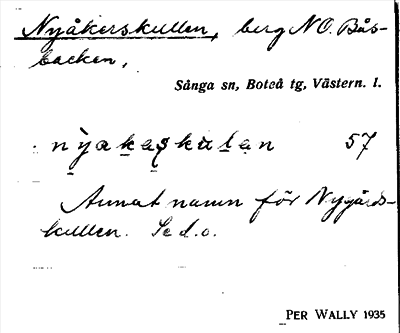 Nyåkerskullen, berg NO. Bås-
backen,
Sånga sn, Boteå tg, Västern. l.
57
Annat namn för Nygårds-
kullen. Se d.o.
PER WALLY 1935